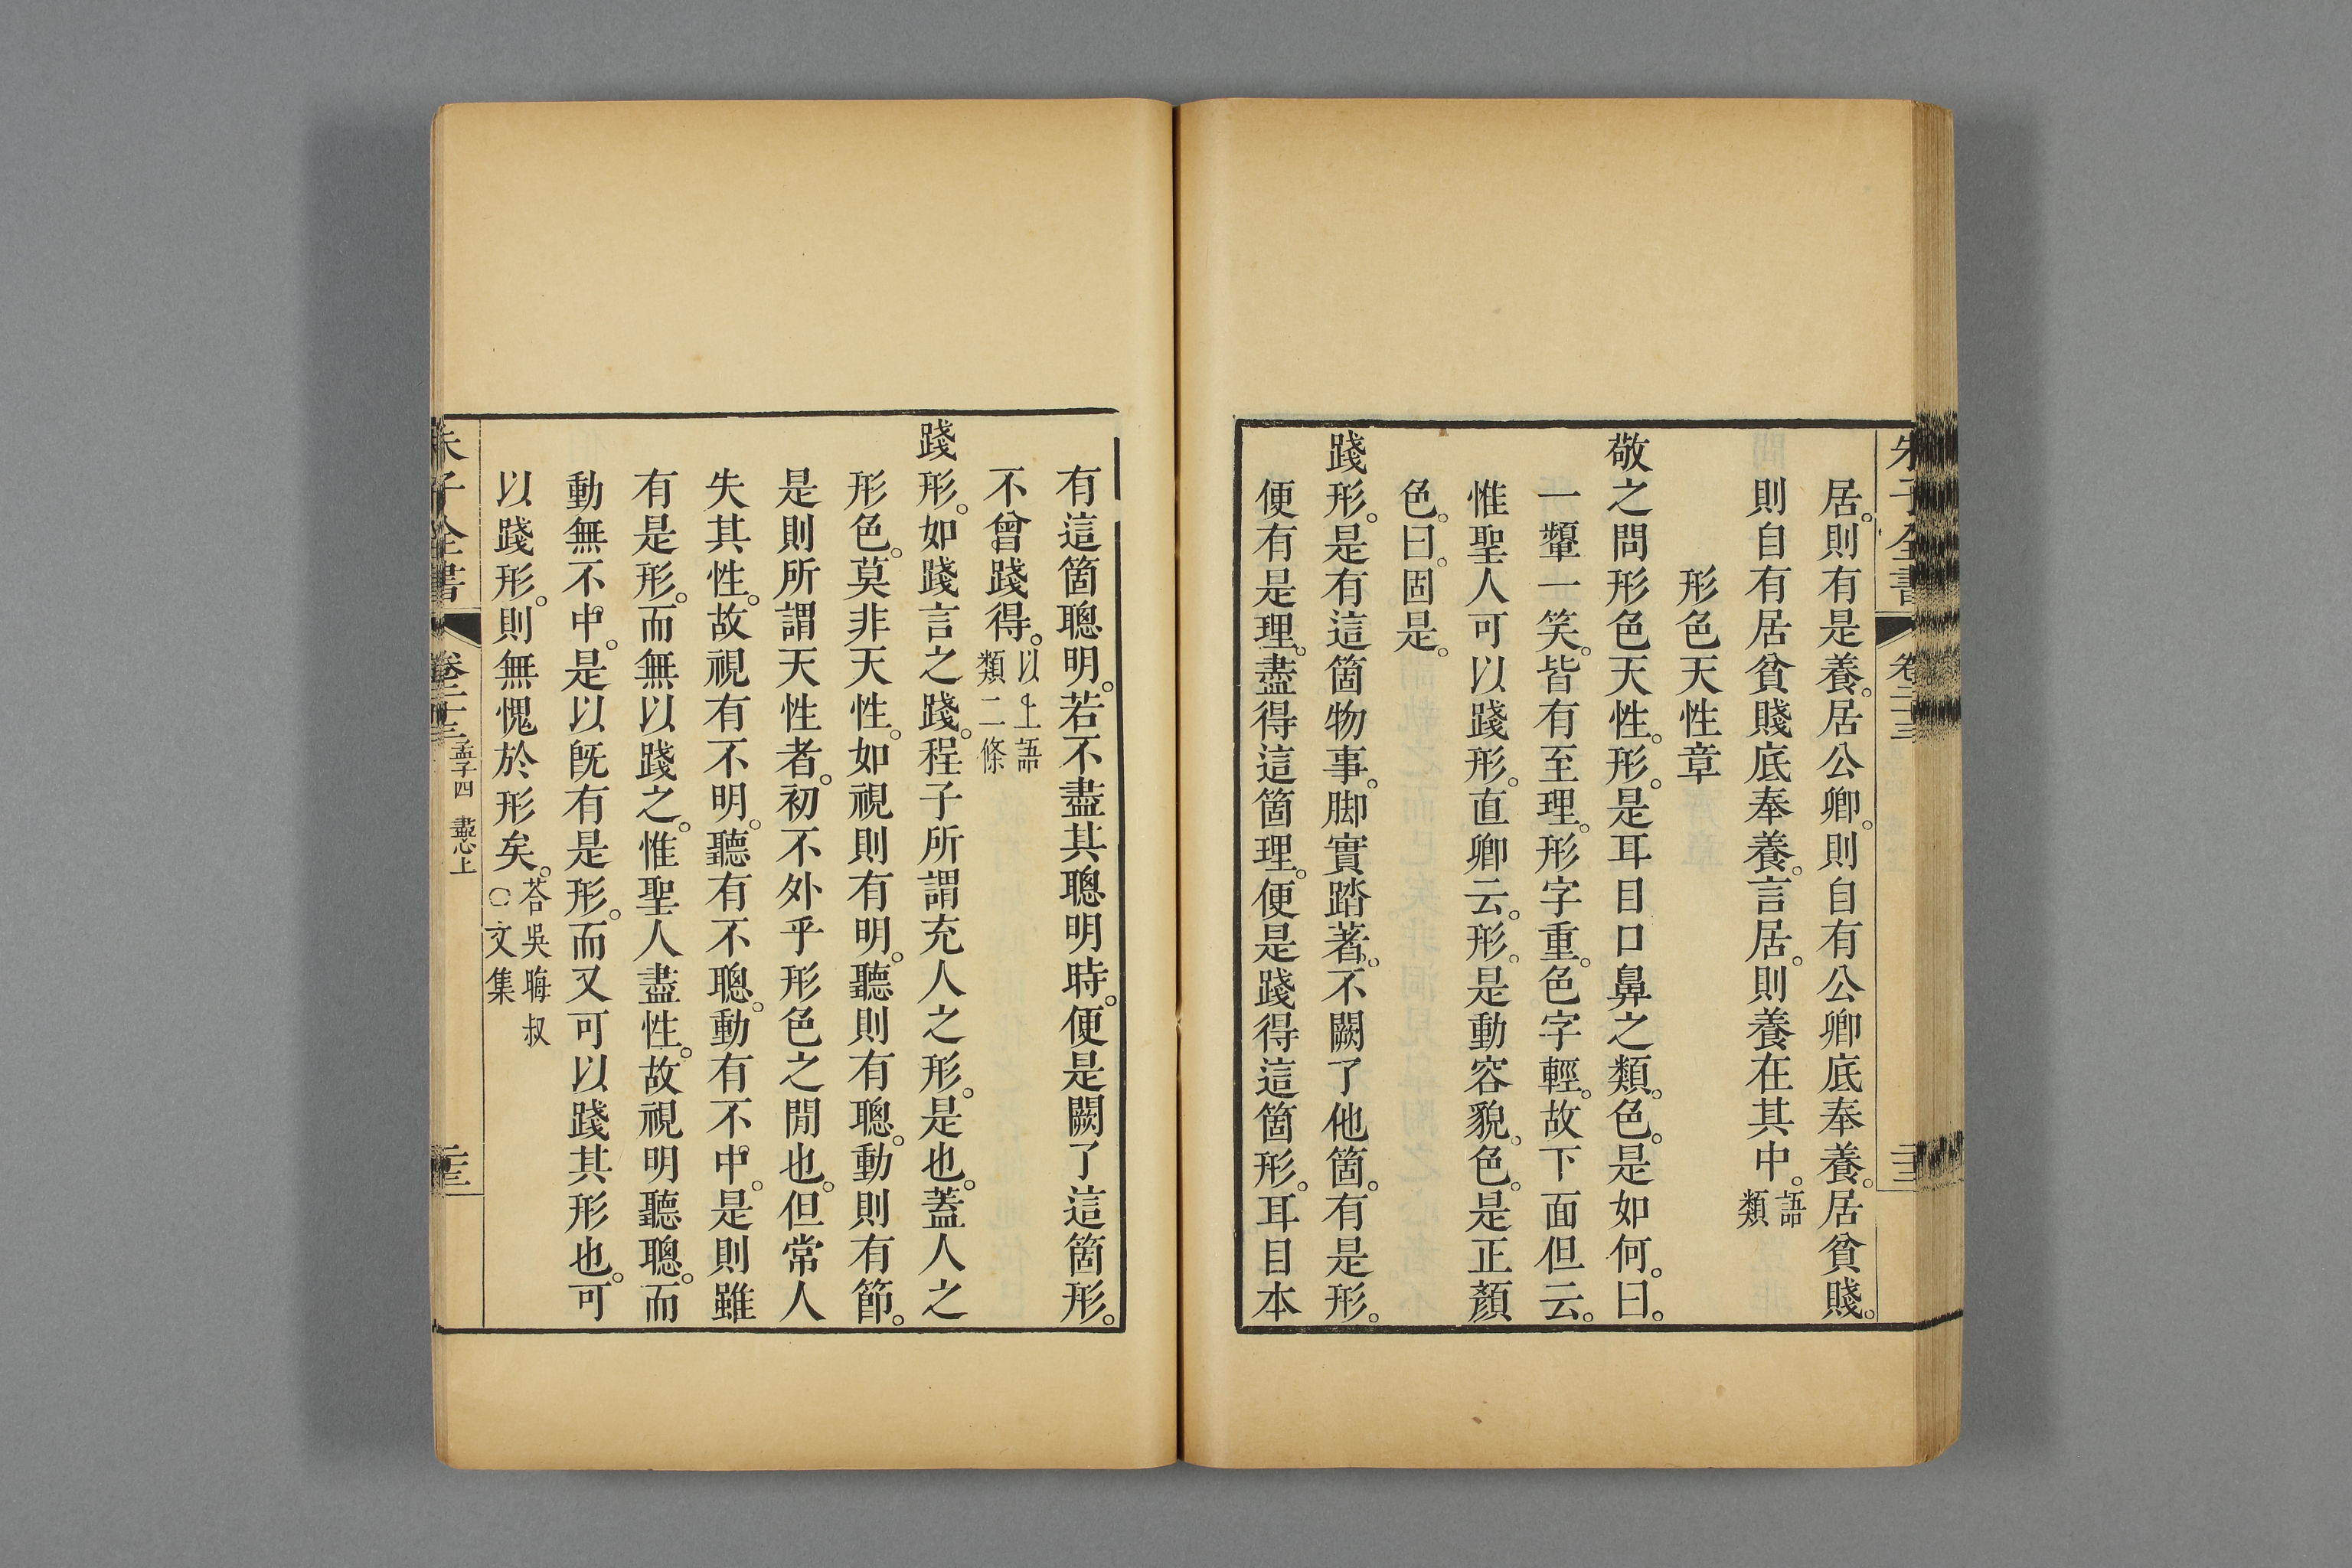 居。則有是養。居公卿。則自有公卿底奉養。居貧賤。
則自有居貧賤底奉養。言居。則養在其中。語類
形色天性章
敬之問形色天性。形。是耳目口鼻之類。色。是如何。曰。
一顰一笑。皆有至理。形字重。色字輕。故下面但云。
惟聖人可以踐形。直卿云。形。是動容貌。色。是正顏
色。曰。固是。
踐形。是有這箇物事。脚實踏著。不闕了他箇。有是形。
便有是理。盡得這箇理。便是踐得這箇形。耳目本
有這箇聰明。若不盡其聰明時。便是闕了這箇形。
不曾踐得。以上語類二條
踐形。如踐言之踐。程子所謂充人之形。是也。蓋人之
形色。莫非天性。如視則有明。聽則有聰。動則有節。
是則所謂天性者。初不外乎形色之閒也。但常人
失其性。故視有不明。聽有不聰。動有不中。是則雖
有是形。而無以踐之。惟聖人盡性。故視明聽聰。而
動無不中。是以旣有是形。而又可以踐其形也。可
以踐形。則無愧於形矣。荅吳晦叔○文集
朱子全書 卷二十三 孟子四 盡心上 二十三